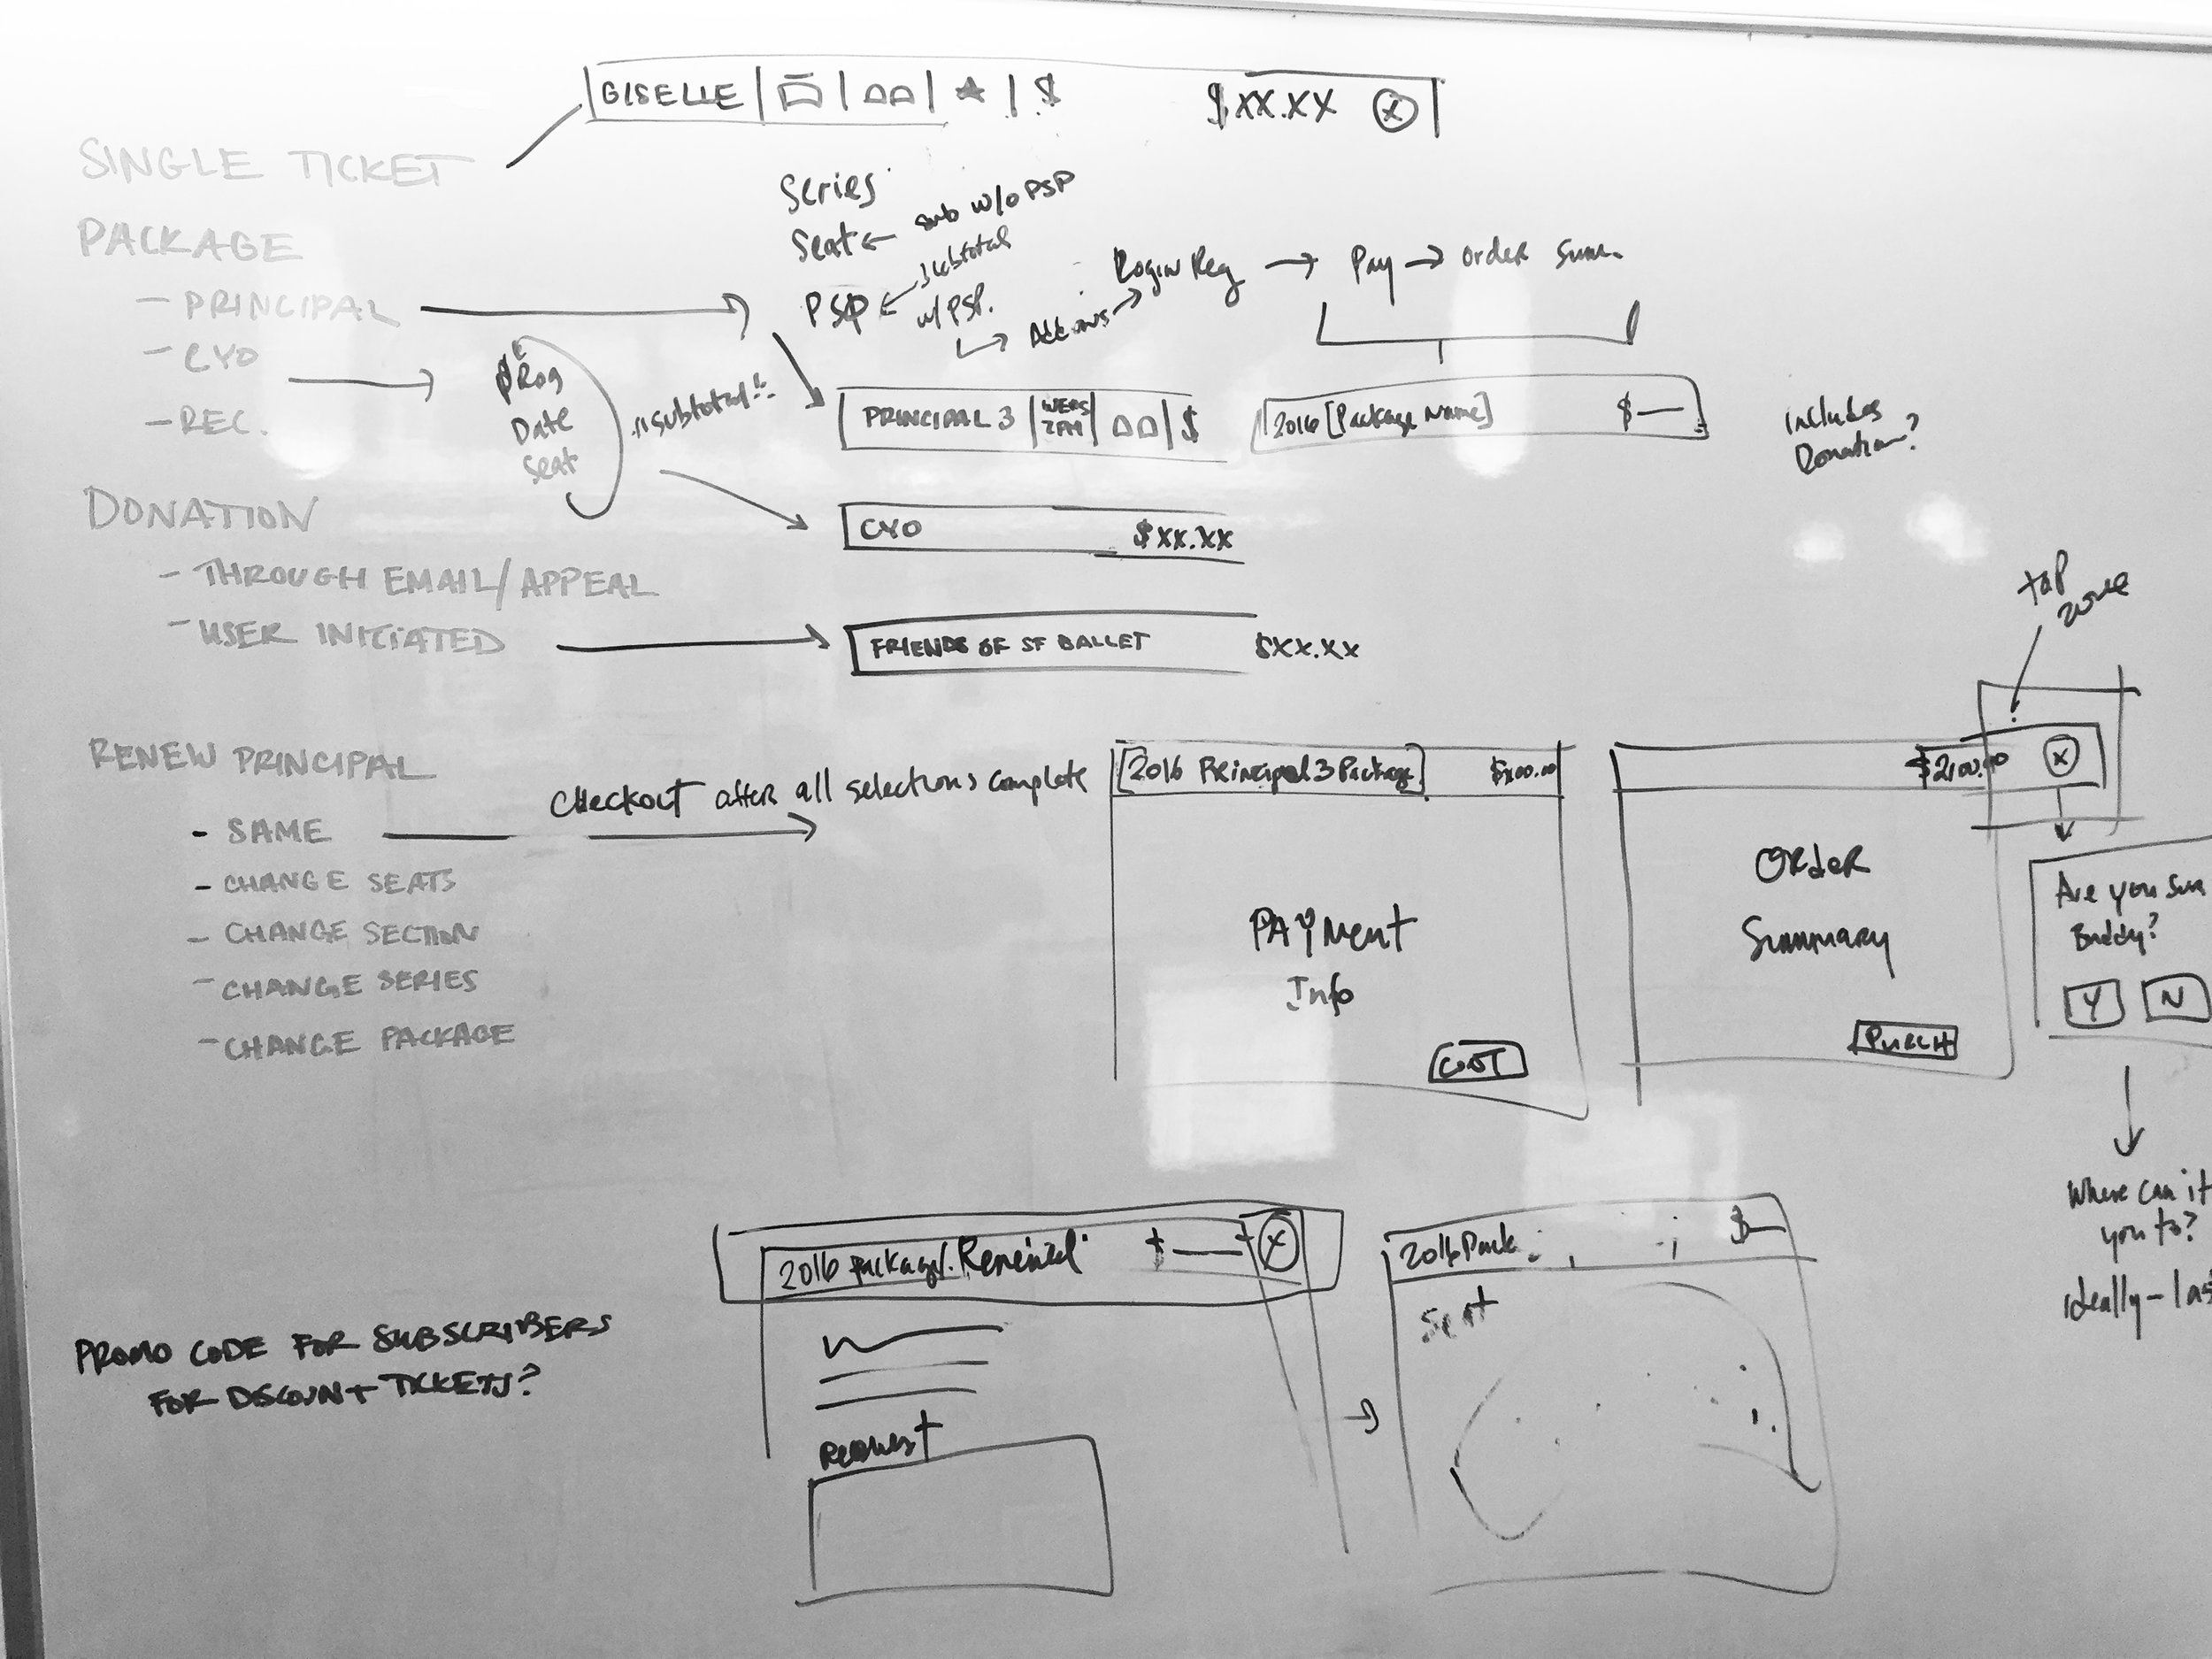 GISELLE $ $XX.XX X
SINGLE TICKET
PACKAGE
- PRINCIPAL
- CYO
- REC.
Series
Seat ← sub w/o PSP
PSP ← subtotal
w/ PSP.
Add ons → Login Reg → Pay → Order Summ.
Prog
Date
Seat
"subtotal"
PRINCIPAL 3 WEDS 7PM $
2016 [Package Name] $—
includes
Donation?
CYO $XX.XX
DONATION
- THROUGH EMAIL/APPEAL
- USER INITIATED
FRIENDS OF SF BALLET $XX.XX
tap
zone
RENEW PRINCIPAL
- SAME
- CHANGE SEATS
- CHANGE SECTION
- CHANGE SERIES
- CHANGE PACKAGE
Checkout after all selections complete
[2016 Principal 3 Package]
PAYMENT
Info
CONT
X
Order
Summary
PURCH
Are you sure
Buddy?
Y N
Where can it
you to?
ideally -
PROMO CODE FOR SUBSCRIBERS
FOR DISCOUNT TICKETS?
2016 Package Renewal $— X
Request
2016 Pack $—
Seat